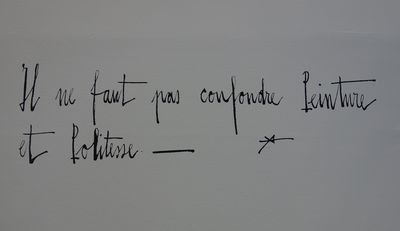 Il ne faut pas confondre Peinture
et Politesse. —